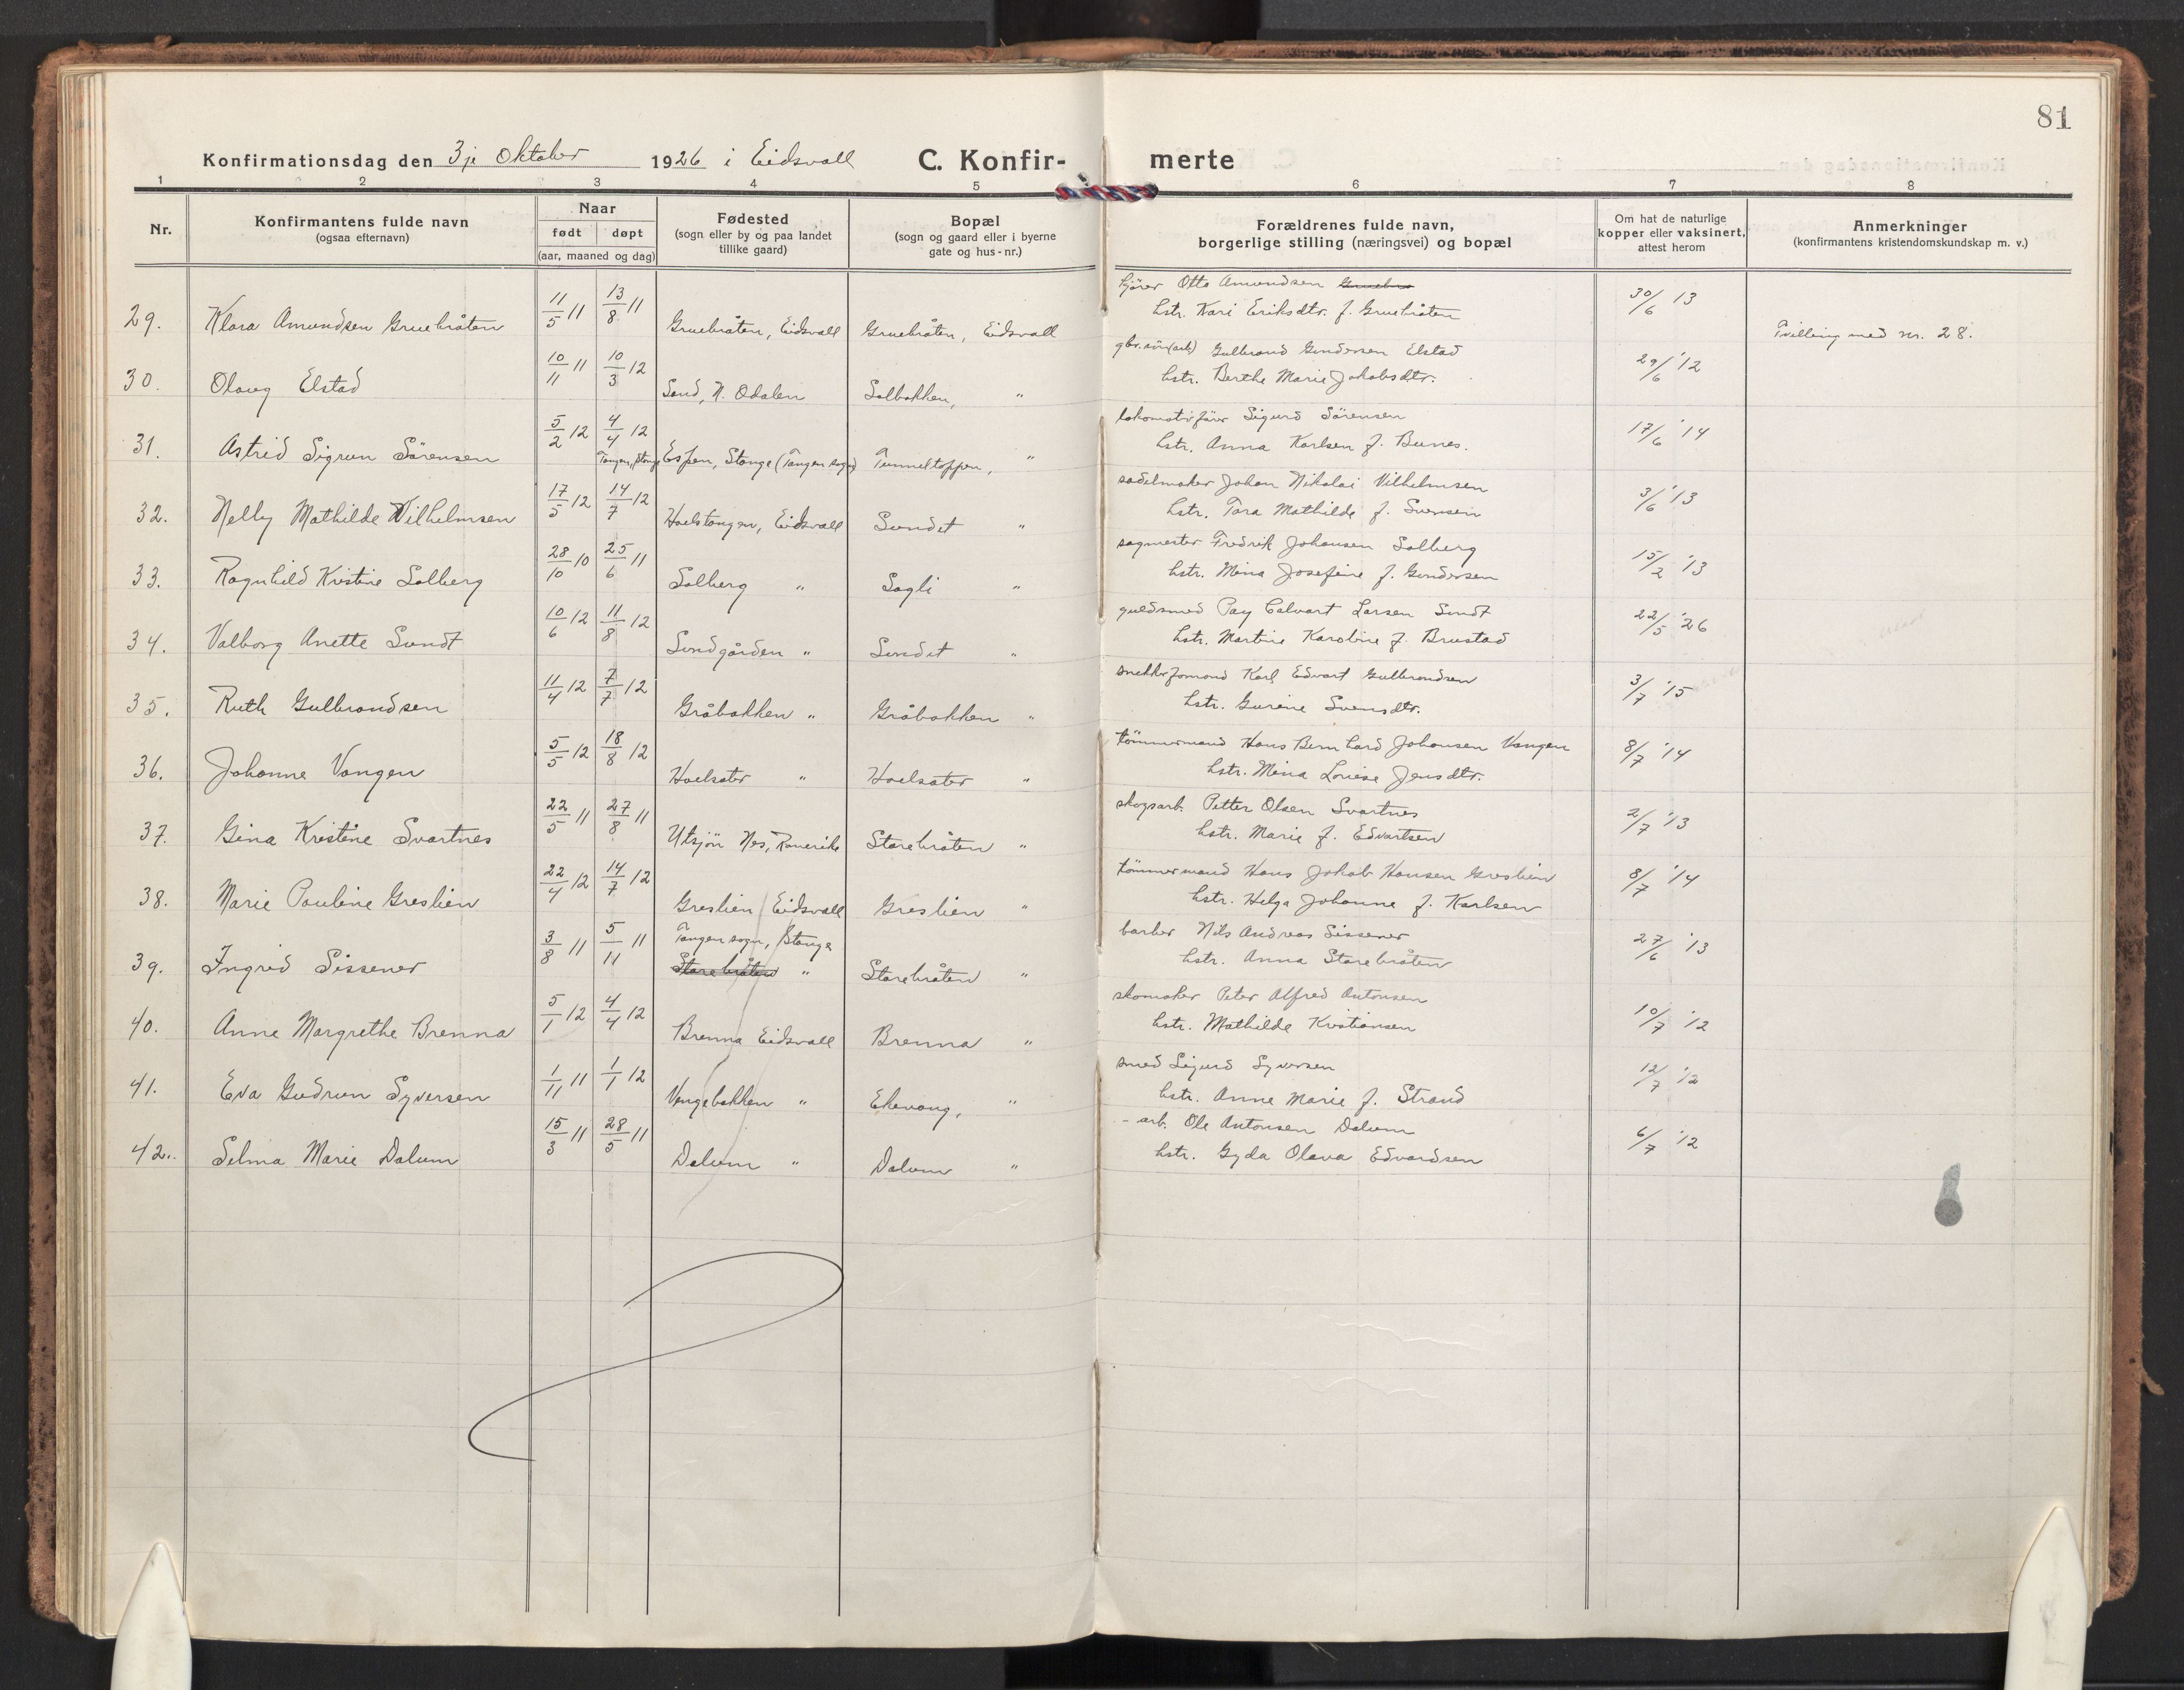 81
Konfirmationsdag den 3je Oktober 1926 i Eidsvall C. Konfir- merte
1 2 3 4 5 6 7 8
Nr.
Konfirmantens fulde navn
(ogsaa efternavn)
Naar
født døpt
(aar, maaned og dag)
Fødested
(sogn eller by og paa landet
tillike gaard)
Bopæl
(sogn og gaard eller i byerne
gate og hus-nr.)
Forældrenes fulde navn,
borgerlige stilling (næringsvei) og bopæl
Om hat de naturlige
kopper eller vaksinert,
attest herom
Anmerkninger
(konfirmantens kristendomskundskap m. v.)
29. Klara Amundsen Gruebråten 11/5 11 13/8 11 Gruebråten, Eidsvall Gruebråten, Eidsvall
kjører Otto Amundsen
hstr. Kari Eriksdtr. f. Gruebråten
30/6 13
Tvilling med nr. 28.
30. Olaug Elstad 10/11 11 10/3 12 Sand, N. Odalen Solbakken, "
gbr. søn (arb) Gulbrand Gundersen Elstad
hstr. Berthe Marie Jakobsdtr.
29/6 '12
31. Astrid Sigrun Sörensen 5/2 12 4/4 12 Tangen, Stange Espen, Stange (Tangen sogn) Tunneltoppen, "
lokomotivfører Sigurd Sörensen
hstr. Anna Karlsen f. Bunes.
17/6 '14
32. Nelly Mathilde Wilhelmsen 17/5 12 14/7 12 Hoelstangen, Eidsvall Sundet "
sadelmaker Johan Nikolai Vilhelmsen
hstr. Tora Mathilde f. Svensen
3/6 '13
33. Ragnhild Kristine Solberg 28/10 10 25/6 11 Solberg " Sagli "
sagmester Fredrik Johansen Solberg
hstr. Mina Josefine f. Gundersen
15/2 '13
34. Valborg Anette Sundt 10/6 12 11/8 12 Sundgården " Sundet "
guldsmed Pay Calvart Larsen Sundt
hstr. Martine Karoline f. Brustad
22/5 '26
35. Ruth Gulbrandsen 11/4 12 7/7 12 Gråbakken " Gråbakken "
snekkerformand Karl Edvart Gulbrandsen
hstr. Gurine Svensdtr.
3/7 '15
36. Johanne Vangen 5/5 12 18/8 12 Hoelsater " Hoelsater "
tömmermand Hans Bernhard Johansen Vangen
hstr. Mina Louise Jensdtr.
8/7 '14
37. Gina Kristine Svartnes 22/5 11 27/8 11 Utsjön Nes, Romerike Starebråten "
skogsarb. Petter Olsen Svartnes
hstr. Marie f. Edvartsen
2/7 '13
38. Marie Pauline Greslien 22/4 12 14/7 12 Greslien Eidsvall Greslien "
tömmermand Hans Jakob Hansen Greslien
hstr. Helga Johanne f. Karlsen
8/7 '14
39. Ingrid Sissener 3/8 11 5/11 11 Tangen sogn, Stange
Starebråten " Starebråten "
barber Nils Andreas Sissener
hstr. Anna Starebråten
27/6 '13
40. Anne Margrethe Brenna 5/1 12 4/4 12 Brenna Eidsvall Brenna "
skomaker Peter Alfred Antonsen
hstr. Mathilde Kristiansen
10/7 '12
41. Eva Gudrun Syversen 1/11 11 1/1 12 Vengebakken " Ekevang, "
smed Sigurd Syversen
hstr. Anne Marie f. Strand
12/7 '12
42. Selma Marie Dalum 15/3 11 28/5 11 Dalum " Dalum "
- arb. Ole Antonsen Dalum
hstr. Gyda Olava Edvardsen
6/7 '12